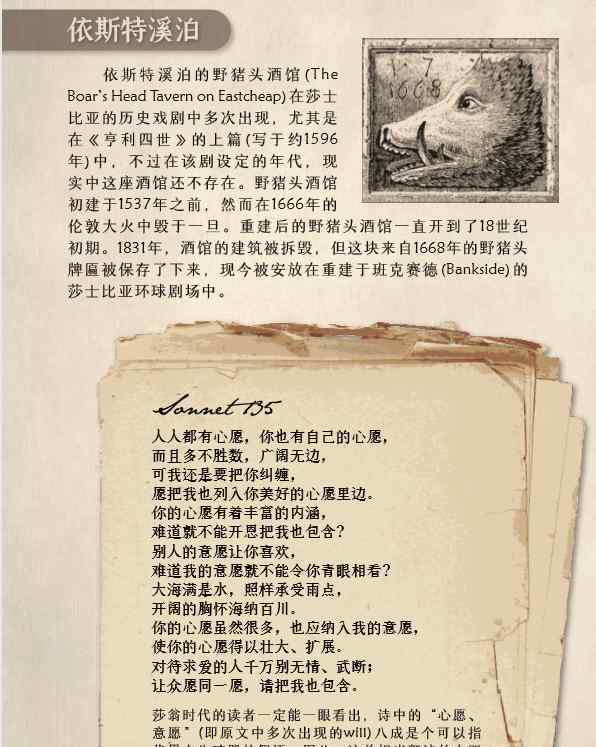 依斯特溪泊
依斯特溪泊的野猪头酒馆 (The
Boar's Head Tavern on Eastcheap) 在莎士
比亚的历史戏剧中多次出现，尤其是
在《亨利四世》的上篇 (写于约1596
年) 中，不过在该剧设定的年代，现
实中这座酒馆还不存在。野猪头酒馆
初建于1537年之前，然而在1666年的
伦敦大火中毁于一旦。重建后的野猪头酒馆一直开到了18世纪
初期。1831年，酒馆的建筑被拆毁，但这块来自1668年的野猪头
牌匾被保存了下来，现今被安放在重建于班克赛德 (Bankside) 的
莎士比亚环球剧场中。
1 7
1668
Sonnet 135
人人都有心愿，你也有自己的心愿，
而且多不胜数，广阔无边，
可我还是要把你纠缠，
愿把我也列入你美好的心愿里边。
你的心愿有着丰富的内涵，
难道就不能开恩把我也包含？
别人的意愿让你喜欢，
难道我的意愿就不能令你青眼相看？
大海满是水，照样承受雨点，
开阔的胸怀海纳百川。
你的心愿虽然很多，也应纳入我的意愿，
使你的心愿得以壮大、扩展。
对待求爱的人千万别无情、武断；
让众愿同一愿，请把我也包含。
莎翁时代的读者一定能一眼看出，诗中的“心愿、
意愿”(即原文中多次出现的will) 八成是个可以指